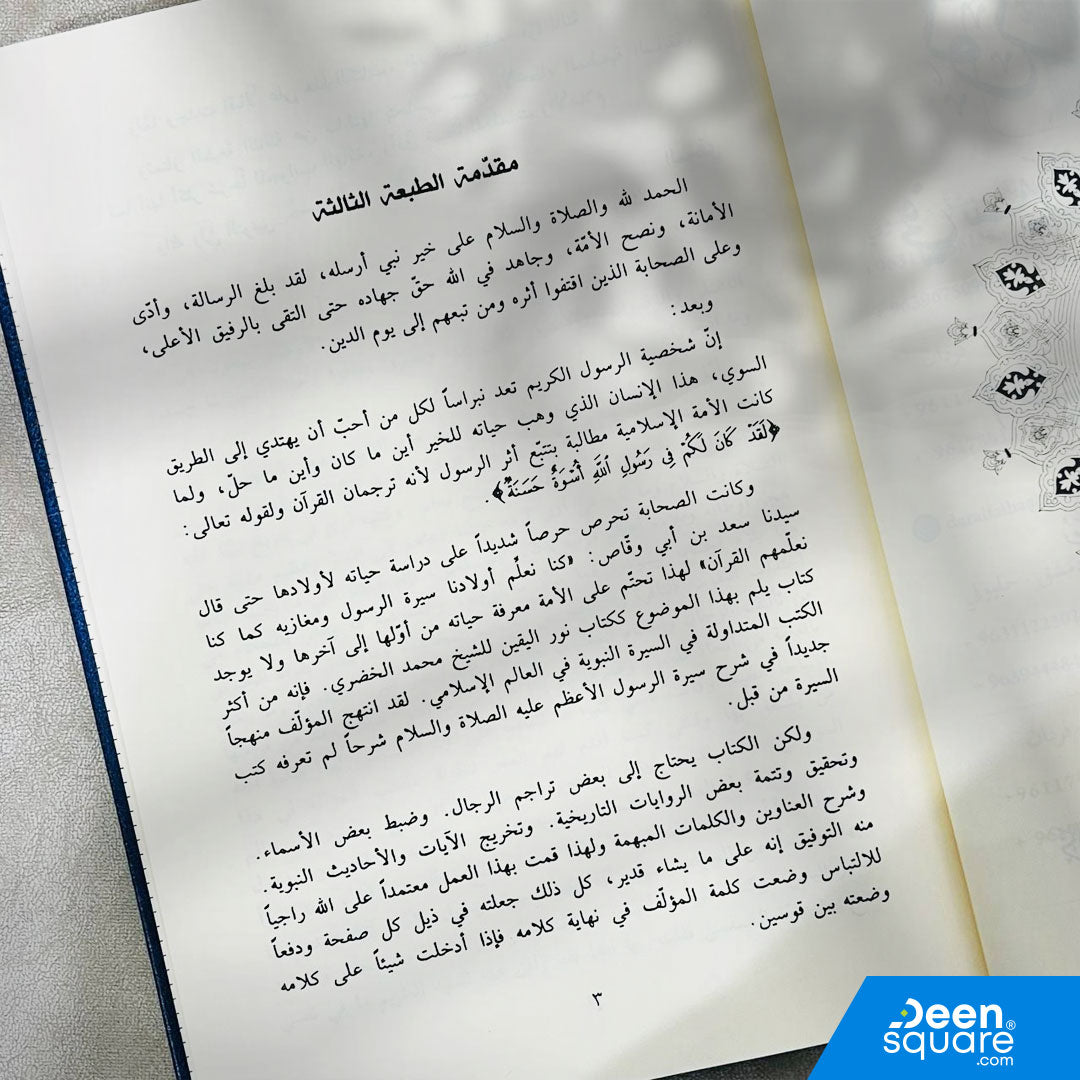 مقدّمة الطبعة الثالثة
الحمد لله والصلاة والسلام على خير نبي أرسله، لقد بلغ الرسالة، وأدّى
الأمانة، ونصح الأمّة، وجاهد في الله حقّ جهاده حتى التقى بالرفيق الأعلى،
وعلى الصحابة الذين اقتفوا أثره ومن تبعهم إلى يوم الدين.
وبعد:
إنّ شخصية الرسول الكريم تعد نبراساً لكل من أحبّ أن يهتدي إلى الطريق
السوي، هذا الإنسان الذي وهب حياته للخير أين ما كان وأين ما حلّ، ولما
كانت الأمة الإسلامية مطالبة بتتبّع أثر الرسول لأنه ترجمان القرآن ولقوله تعالى:
﴿لَقَدْ كَانَ لَكُمْ فِى رَسُولِ ٱللَّهِ أُسْوَةٌ حَسَنَةٌ﴾.
وكانت الصحابة تحرص حرصاً شديداً على دراسة حياته لأولادها حتى قال
سيدنا سعد بن أبي وقّاص: «كنا نعلّم أولادنا سيرة الرسول ومغازيه كما كنا
نعلّمهم القرآن» لهذا تحتّم على الأمة معرفة حياته من أوّلها إلى آخرها ولا يوجد
كتاب يلم بهذا الموضوع ككتاب نور اليقين للشيخ محمد الخضري. فإنه من أكثر
الكتب المتداولة في السيرة النبوية في العالم الإسلامي. لقد انتهج المؤلّف منهجاً
جديداً في شرح سيرة الرسول الأعظم عليه الصلاة والسلام شرحاً لم تعرفه كتب
السيرة من قبل.
ولكن الكتاب يحتاج إلى بعض تراجم الرجال. وضبط بعض الأسماء.
وتحقيق وتتمة بعض الروايات التاريخية. وتخريج الآيات والأحاديث النبوية.
وشرح العناوين والكلمات المبهمة ولهذا قمت بهذا العمل معتمداً على الله راجياً
منه التوفيق إنه على ما يشاء قدير، كل ذلك جعلته في ذيل كل صفحة ودفعاً
للالتباس وضعت كلمة المؤلّف في نهاية كلامه فإذا أدخلت شيئاً على كلامه
وضعته بين قوسين.
٣
Deen®
square
.com